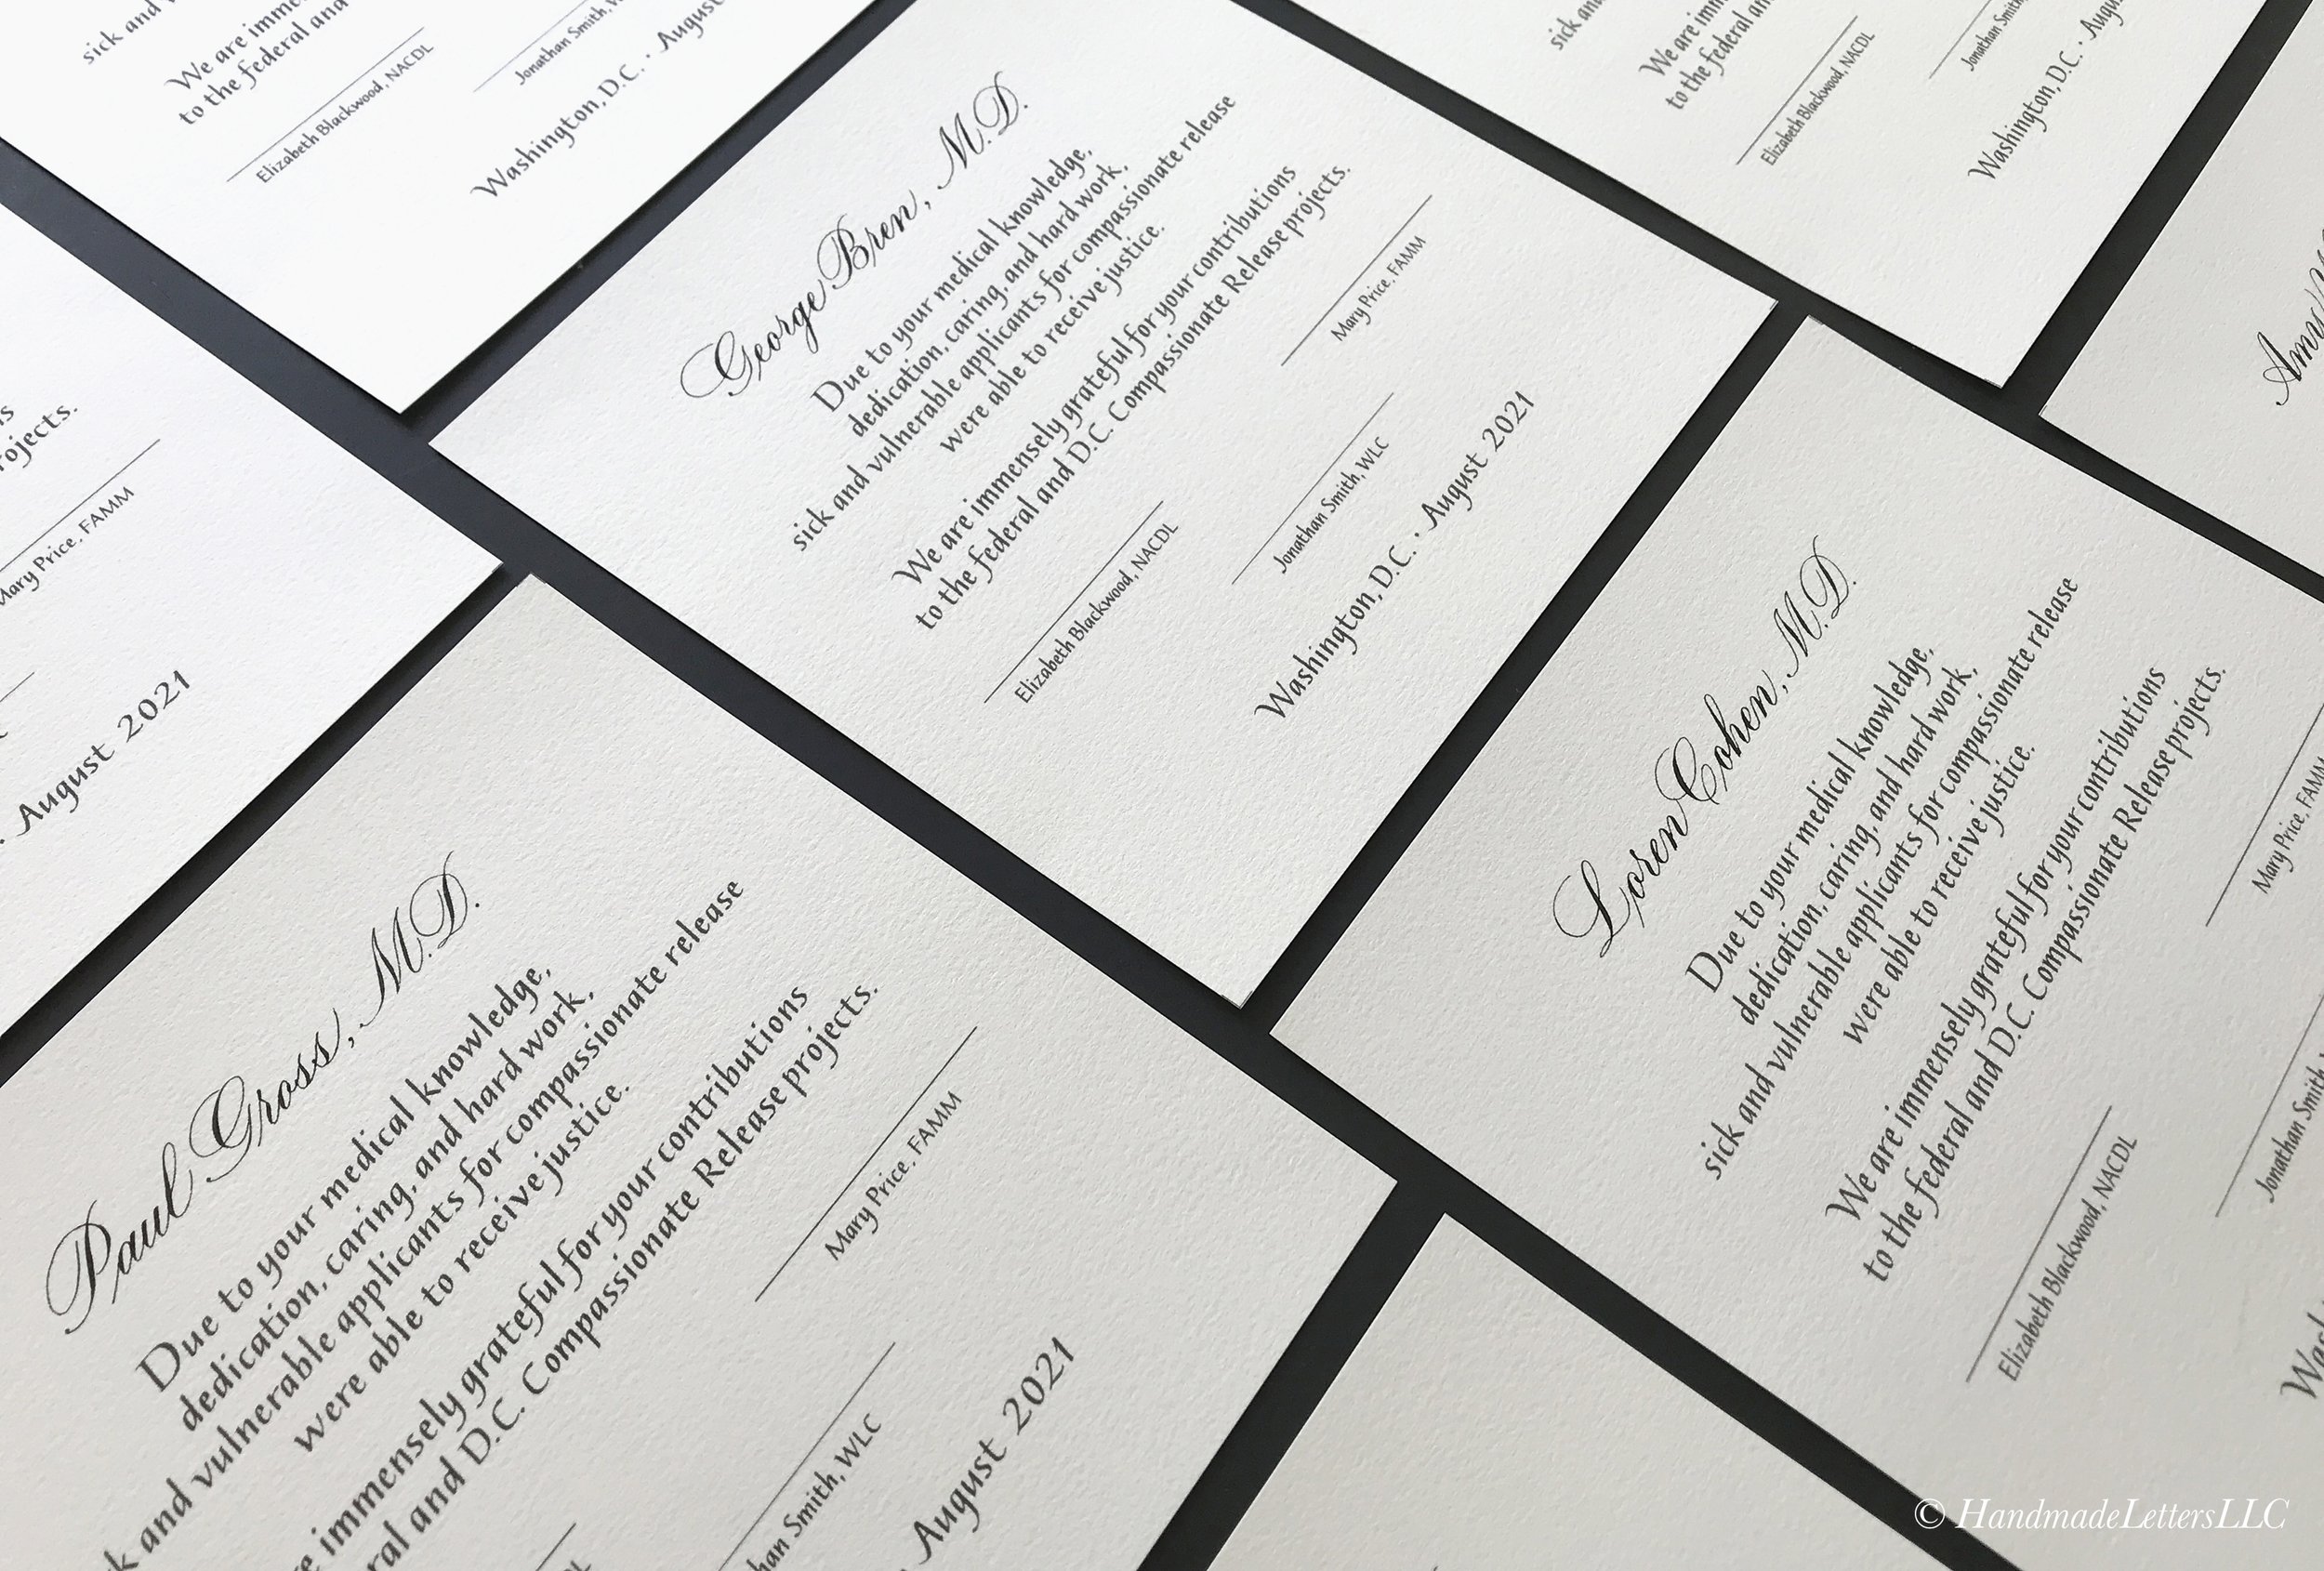 sick and
We are imme
to the federal and
Elizabeth Blackwood, NACDL
Jonathan Smith, W
Washington, D.C. · August
sick and
We are imm
to the federal an
Elizabeth Blackwood, NACDL
Jonathan Smith
Washington, D.C. · Augu
George Bren, M.D.
Due to your medical knowledge,
dedication, caring, and hard work,
sick and vulnerable applicants for compassionate release
were able to receive justice.
We are immensely grateful for your contributions
to the federal and D.C. Compassionate Release projects.
Mary Price, FAMM
Elizabeth Blackwood, NACDL
Jonathan Smith, WLC
Washington, D.C. · August 2021
rojects.
Mary Price, FAMM
August 2021
Loren Cohen, M.D.
Due to your medical knowledge,
dedication, caring, and hard work,
sick and vulnerable applicants for compassionate release
were able to receive justice.
We are immensely grateful for your contributions
to the federal and D.C. Compassionate Release projects.
Mary Price, FAMM
Elizabeth Blackwood, NACDL
Jonathan Smith
Was
Paul Gross, M.D.
Due to your medical knowledge,
dedication, caring, and hard work,
k and vulnerable applicants for compassionate release
were able to receive justice.
e immensely grateful for your contributions
ral and D.C. Compassionate Release projects.
Mary Price, FAMM
than Smith, WLC
August 2021
© HandmadeLettersLLC